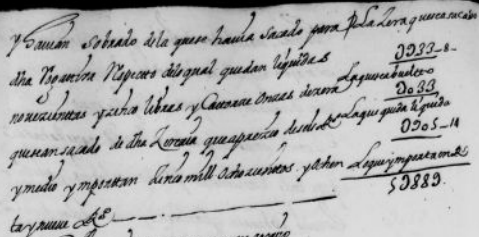 y havian sobrado de la que se havia sacado para
dha Respecto de lo qual quedan liquidas
novezientas y zinco libras y Catorze onzas de zera
que se an sacado de dha a prezio de seis Rs
y medio y mportan Zinco mill ochozientos y ochen
ta y nueve Rs
La zera que se ha sacado
D933-8-
La que se a buelto
D033
La que queda liquida
D905-14
Lo que ymporta en Rs
5D889.